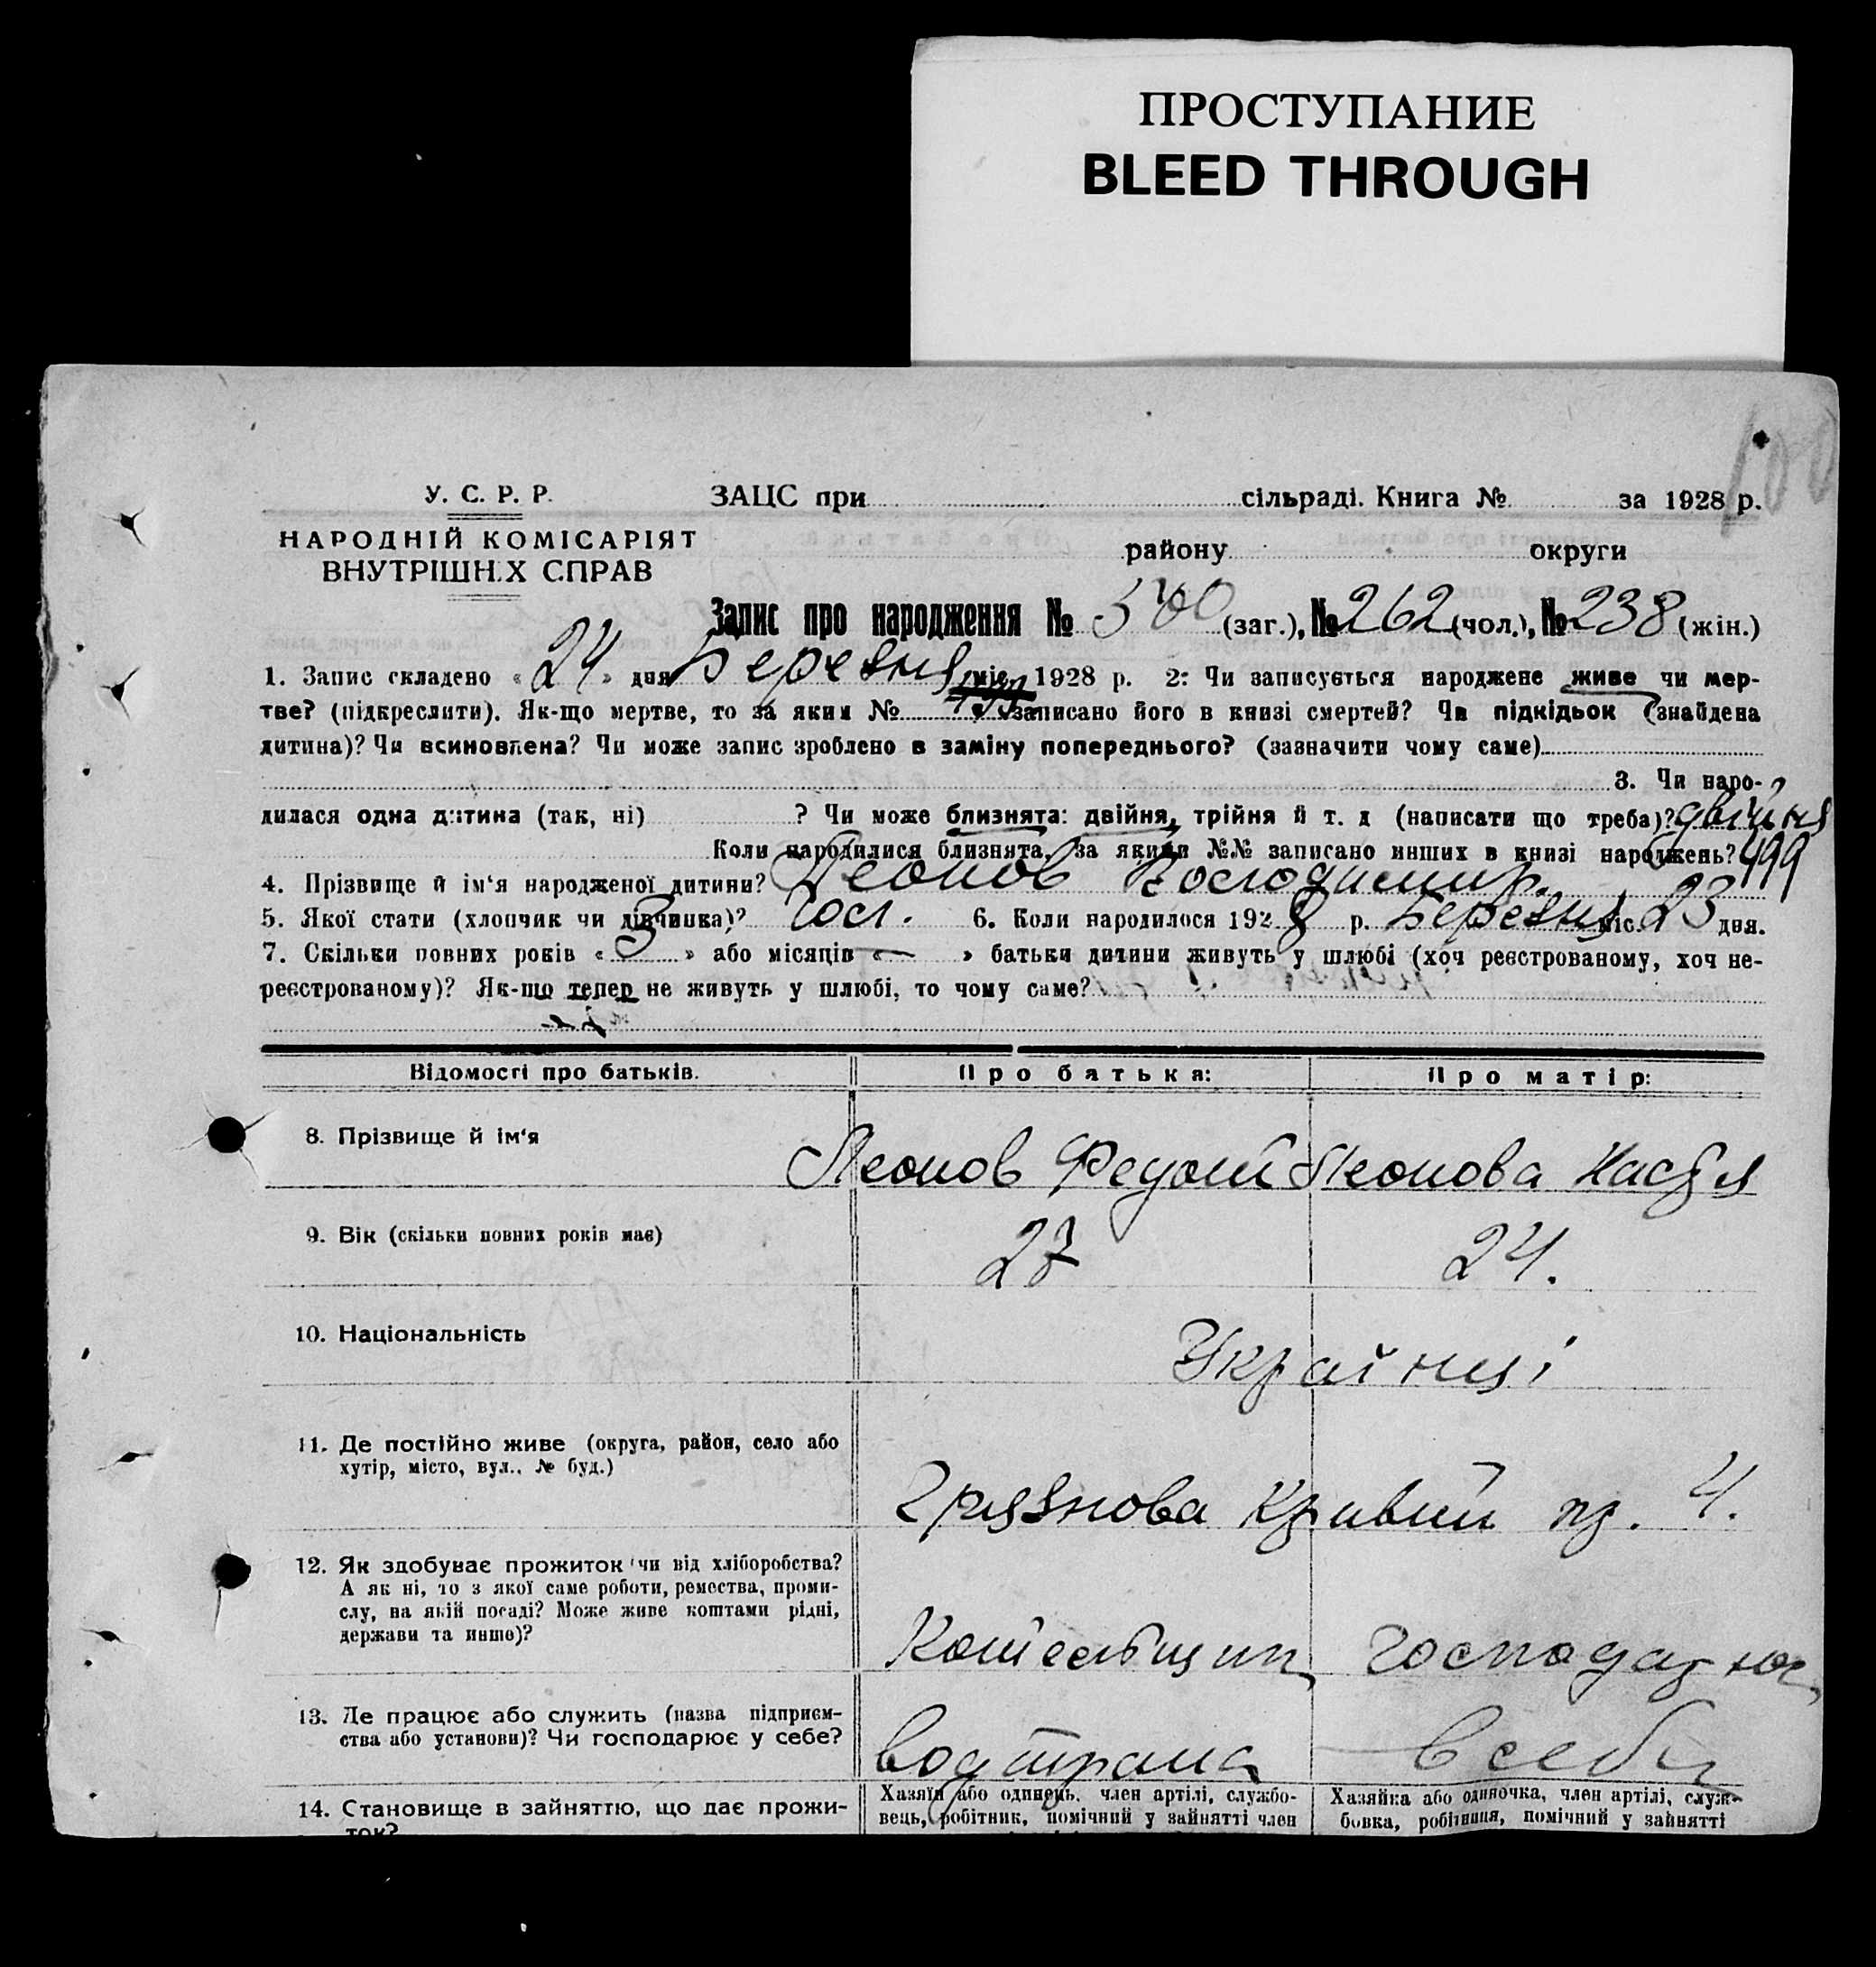 ПРОСТУПАНИЕ
BLEED THROUGH
100
У. С. Р. Р.
НАРОДНІЙ КОМІСАРІЯТ
ВНУТРІШНІХ СПРАВ
ЗАЦС при сільраді. Книга № за 1928 р.
району округи
Запис про народження № 500 (заг.), № 262 (чол.), № 238 (жін.)
1. Запис складено « 24 » дня Березня міс. 1928 р. 2: Чи записується народжене живе чи мер-
тве? (підкреслити). Як-що мертве, то за яким № записано його в книзі смертей? Чи підкідьок (знайдена
дитина)? Чи всиновлена? Чи може запис зроблено в заміну попереднього? (зазначити чому саме)
3. Чи наро-
дилася одна дитина (так, ні) ? Чи може близнята: двійня, трійня й т. д (написати що треба)? двійня
Коли народилися близнята, за якими №№ записано инших в книзі народжень? 499
4. Прізвище й ім‘я народженої дитини? Леонов Володимир.
5. Якої стати (хлопчик чи дівчинка)? чол. 6. Коли народилося 1928 р. Березня міс. 23 дня.
7. Скільки повних років « 3 » або місяців « — » батьки дитини живуть у шлюбі (хоч реєстрованому, хоч не-
реєстрованому)? Як-що тепер не живуть у шлюбі, то чому саме?
Відомості про батьків. Про батька: Про матір:
8. Прізвище й ім‘я Леонов Федот Леонова Настя
9. Вік (скільки повних років має) 27 24.
10. Національність Українці
11. Де постійно живе (округа, район, село або
хутір, місто, вул., № буд.)
Грязнова Кривий пр. 4.
12. Як здобуває прожиток чи від хліборобства?
А як ні, то з якої саме роботи, ремества, проми-
слу, на якій посаді? Може живе коштами рідні,
держави та инше)?
господарює
13. Де працює або служить (назва підприєм-
ства або установи)? Чи господарює у себе?
Водтранс в себе
14. Становище в зайняттю, що дає прожи-
ток?
Хазяїн або одинець, член артілі, службо-
вець, робітник, помічний у зайнятті член
Хазяйка або одиночка, член артілі, служ-
бовка, робітниця, помічний у зайнятті